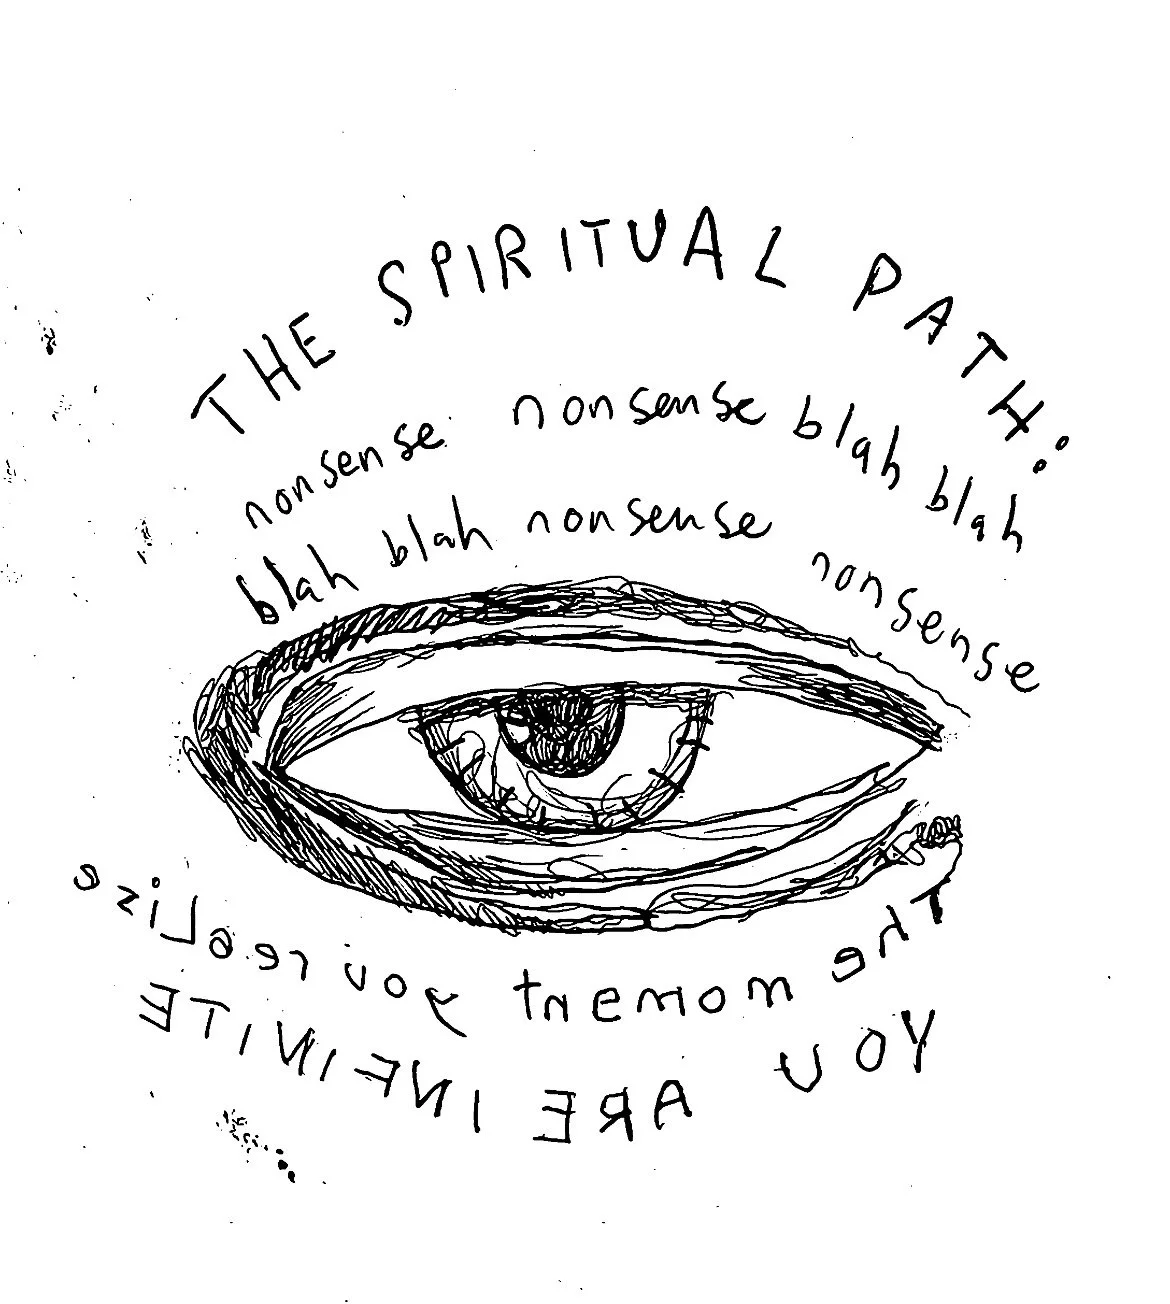 THE SPIRITUAL PATH:
nonsense nonsense blah blah
blah blah nonsense nonsense
The moment you reaLize
YOU ARE INFINITE